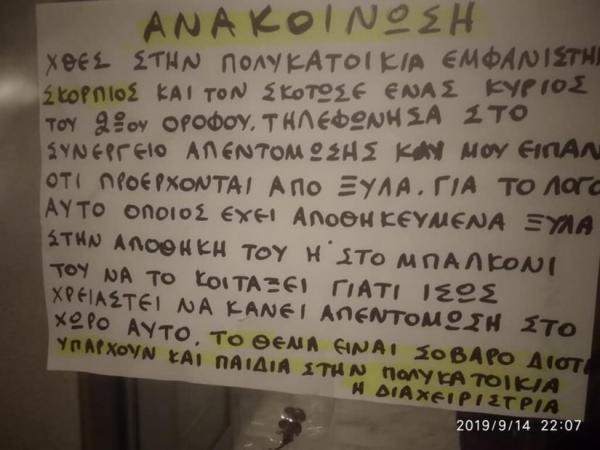 ΑΝΑΚΟΙΝΩΣΗ
ΧΘΕΣ ΣΤΗΝ ΠΟΛΥΚΑΤΟΙΚΙΑ ΕΜΦΑΝΙΣΤΗ
ΣΚΟΡΠΙΟΣ ΚΑΙ ΤΟΝ ΣΚΟΤΩΣΕ ΕΝΑΣ ΚΥΡΙΟΣ
ΤΟΥ 2ΟΥ ΟΡΟΦΟΥ. ΤΗΛΕΦΩΝΗΣΑ ΣΤΟ
ΣΥΝΕΡΓΕΙΟ ΑΠΕΝΤΟΜΩΣΗΣ ΚΑΙ ΜΟΥ ΕΙΠΑΝ
ΟΤΙ ΠΡΟΕΡΧΟΝΤΑΙ ΑΠΟ ΞΥΛΑ. ΓΙΑ ΤΟ ΛΟΓΟ
ΑΥΤΟ ΟΠΟΙΟΣ ΕΧΕΙ ΑΠΟΘΗΚΕΥΜΕΝΑ ΞΥΛΑ
ΣΤΗΝ ΑΠΟΘΗΚΗ ΤΟΥ Η΄ ΣΤΟ ΜΠΑΛΚΟΝΙ
ΤΟΥ ΝΑ ΤΟ ΚΟΙΤΑΞΕΙ ΓΙΑΤΙ ΙΣΩΣ
ΧΡΕΙΑΣΤΕΙ ΝΑ ΚΑΝΕΙ ΑΠΕΝΤΟΜΩΣΗ ΣΤΟ
ΧΩΡΟ ΑΥΤΟ. ΤΟ ΘΕΜΑ ΕΙΝΑΙ ΣΟΒΑΡΟ ΔΙΟΤΙ
ΥΠΑΡΧΟΥΝ ΚΑΙ ΠΑΙΔΙΑ ΣΤΗΝ ΠΟΛΥΚΑΤΟΙΚΙΑ
Η ΔΙΑΧΕΙΡΙΣΤΡΙΑ
2019/9/14 22:07